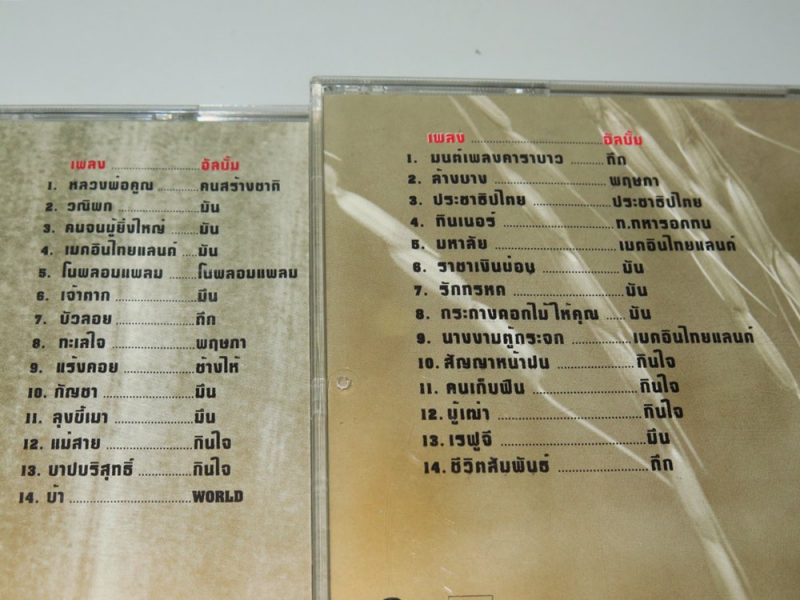 เพลง ........ อัลบั้ม
1. หลวงพ่อคูณ ........ คนสร้างชาติ
2. วณิพก ........ มัน
3. คนจนผู้ยิ่งใหญ่ ........ มัน
4. เมดอินไทยแลนด์ .... มัน
5. โนพลอมแพลม ........ โนพลอมแพลม
6. เจ้าตาก ........ มึน
7. บัวลอย ........ ถึก
8. ทะเลใจ ........ พฤษภา
9. แร้งคอย ........ ช้างไห้
10. กัญชา ........ มึน
11. ลุงขี้เมา ........ มึน
12. แม่สาย ........ กินใจ
13. บาปบริสุทธิ์ ........ กินใจ
14. บ้า ........ WORLD
เพลง ........ อัลบั้ม
1. มนต์เพลงคาราบาว ........ ถึก
2. ล้างบาง ........ พฤษภา
3. ประชาธิปไตย ........ ประชาธิปไตย
4. ทินเนอร์ ........ ท.ทหารอดทน
5. มหาลัย ........ เมดอินไทยแลนด์
6. ราชาเงินผ่อน ........ มัน
7. รักทรหด ........ มัน
8. กระถางดอกไม้ให้คุณ ..... มัน
9. นางงามตู้กระจก ........ เมดอินไทยแลนด์
10. สัญญาหน้าฝน ........ กินใจ
11. คนเก็บฟืน ........ กินใจ
12. ผู้เฒ่า ........ กินใจ
13. เรฟูจี ........ มึน
14. ชีวิตสัมพันธ์ ........ ถึก